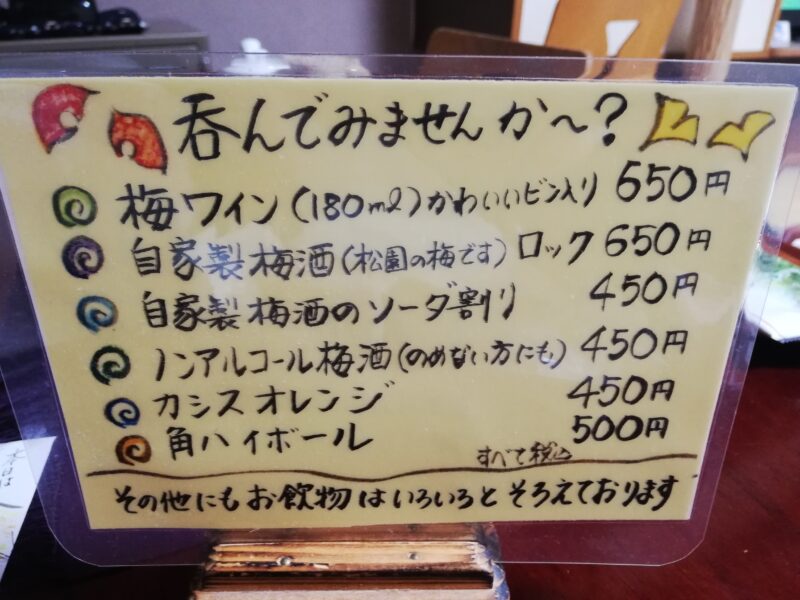 呑んでみませんか〜?
梅ワイン(180ml)かわいいビン入り 650円
自家製梅酒(松園の梅です)ロック 650円
自家製梅酒のソーダ割り 450円
ノンアルコール梅酒(のめない方にも) 450円
カシスオレンジ 450円
角ハイボール 500円
すべて税込
その他にもお飲物はいろいろとそろえております